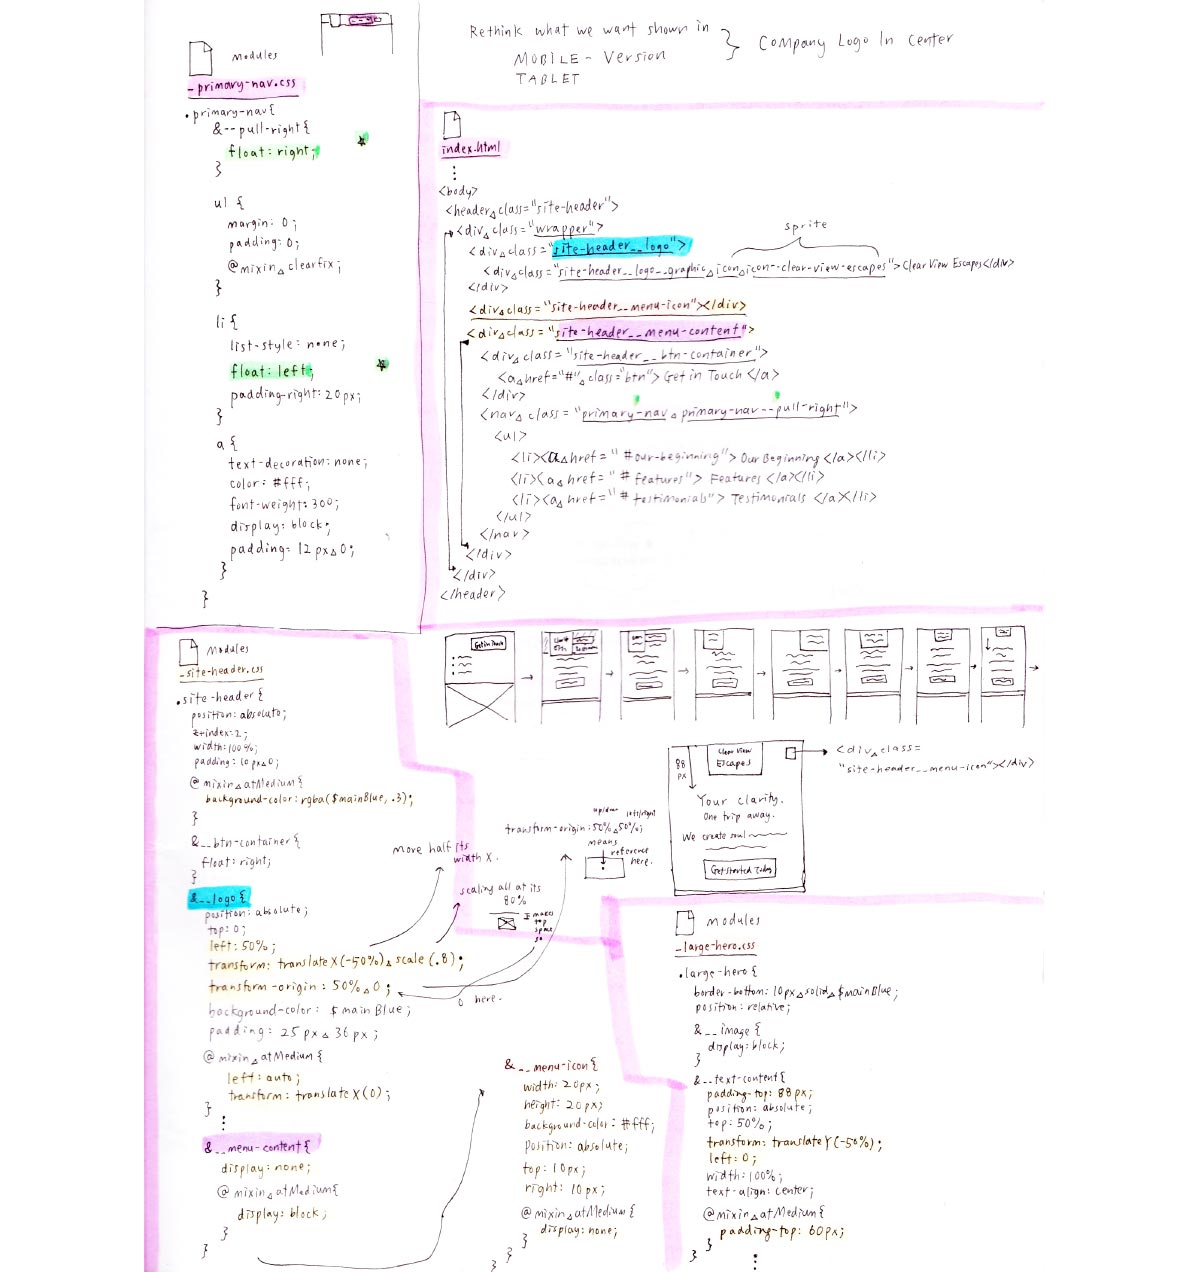 Modules
_primary-nav.css
.primary-nav{
&--pull-right{
float:right;
}
ul {
margin: 0;
padding: 0;
@mixin△clearfix;
}
li {
list-style: none;
float: left;
padding-right: 20px;
}
a {
text-decoration: none;
color: #fff;
font-weight: 300;
display: block;
padding: 12px△0;
}
}
Rethink what we want shown in
MOBILE - Version
TABLET
} Company Logo In Center
index.html
⋮
<body>
<header△class="site-header">
<div△class="wrapper">
<div△class="site-header__logo">
sprite
<div△class="site-header__logo__graphic△icon△icon--clear-view-escapes">Clear View Escapes</div>
</div>
<div△class="site-header__menu-icon"></div>
<div△class="site-header__menu-content">
<div△class="site-header__btn-container">
<a△href="#"△class="btn">Get in Touch</a>
</div>
<nav△class="primary-nav△primary-nav--pull-right">
<ul>
<li><a△href="#our-beginning">Our Beginning</a></li>
<li><a△href="#features">Features</a></li>
<li><a△href="#testimonials">Testimonials</a></li>
</ul>
</nav>
</div>
</div>
</header>
Modules
_site-header.css
.site-header{
position: absolute;
z-index: 2;
width: 100%;
padding: 10px△0;
@mixin△atMedium{
background-color: rgba($mainBlue, .3);
}
&__btn-container{
float: right;
}
&__logo{
position: absolute;
top: 0;
left: 50%;
transform: translateX(-50%)△scale(.8);
transform-origin: 50%△0;
background-color: $mainBlue;
padding: 25px△36px;
@mixin△atMedium{
left: auto;
transform: translateX(0);
}
⋮
&__menu-content{
display: none;
@mixin△atMedium{
display: block;
}
}
move half its
width X.
scaling all at its
80%
I makes
top
space
so
0 here.
up/down left/right
transform-origin: 50%△50%;
means
reference
here.
Get in Touch
88
px
Clear View
Escapes
Your clarity.
One trip away.
We create soul
Get Started Today
<div△class=
"site-header__menu-icon"></div>
&__menu-icon{
width: 20px;
height: 20px;
background-color: #fff;
position: absolute;
top: 10px;
right: 10px;
@mixin△atMedium{
display: none;
}
}
}
modules
_large-hero.css
.large-hero{
border-bottom: 10px△solid△$mainBlue;
position: relative;
&__image{
display: block;
}
&__text-content{
padding-top: 88px;
position: absolute;
top: 50%;
transform: translateY(-50%);
left: 0;
width: 100%;
text-align: center;
@mixin△atMedium{
padding-top: 60px;
}
}
}
⋮